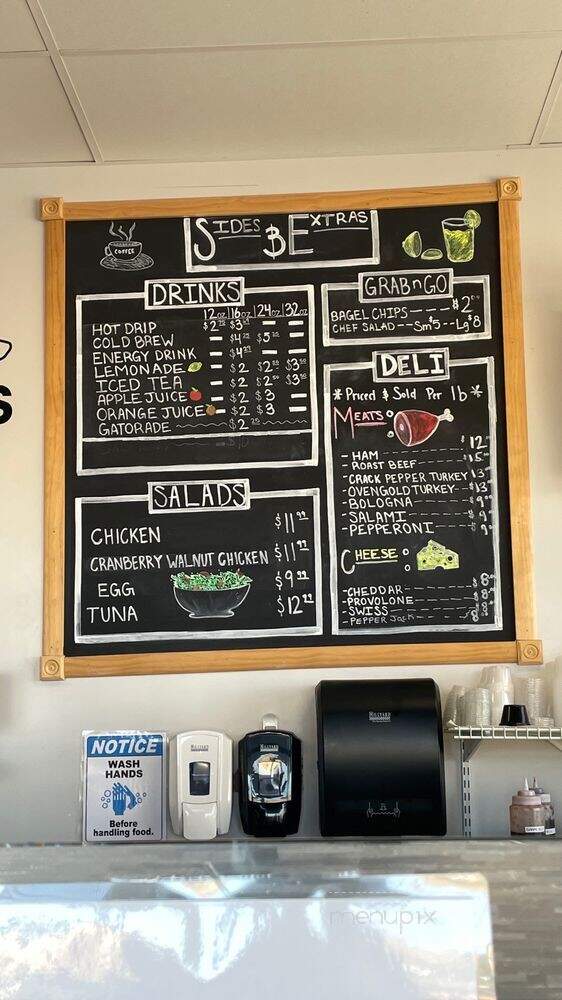 SIDES & EXTRAS
COFFEE
DRINKS
12oz 16oz 24oz 32oz
HOT DRIP $2 $3 — —
COLD BREW — $4 $5 —
ENERGY DRINK — $4 — —
LEMONADE — $2 $2 $3
ICED TEA — $2 $2 $3
APPLE JUICE — $2 $3 —
ORANGE JUICE — $2 $3 —
GATORADE $2
SALADS
CHICKEN $11.99
CRANBERRY WALNUT CHICKEN $11.99
EGG $9.99
TUNA $12.99
GRAB n GO
BAGEL CHIPS — — — $2
CHEF SALAD -- Sm $5 -- Lg $8
DELI
* Priced & Sold Per lb *
MEATS:
- HAM $12
- ROAST BEEF $15
- CRACK PEPPER TURKEY
- OVENGOLD TURKEY
- BOLOGNA $9
- SALAMI $9
- PEPPERONI $9
CHEESE:
- CHEDDAR $8
- PROVOLONE $8
- SWISS $8
- PEPPER JACK
S
NOTICE
WASH
HANDS
Before
handling food.
HILLYARD
HILLYARD
HILLYARD
menupix